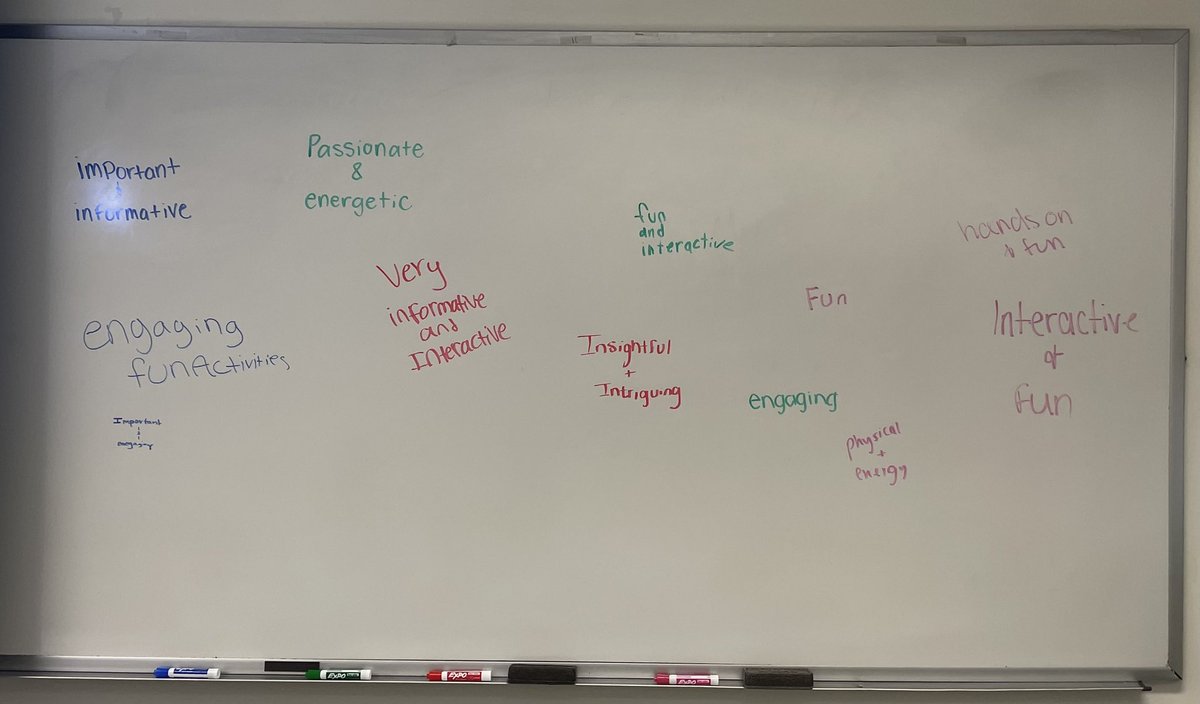 important
&
informative
Passionate
&
energetic
fun
and
interactive
hands on
& fun
Very
informative
and
Interactive
Fun
Interactive
of
Fun
engaging
funActivities
Insightful
+
Intriguing
engaging
Important
&
physical
+
energy
EXPO
EXPO
EXPO